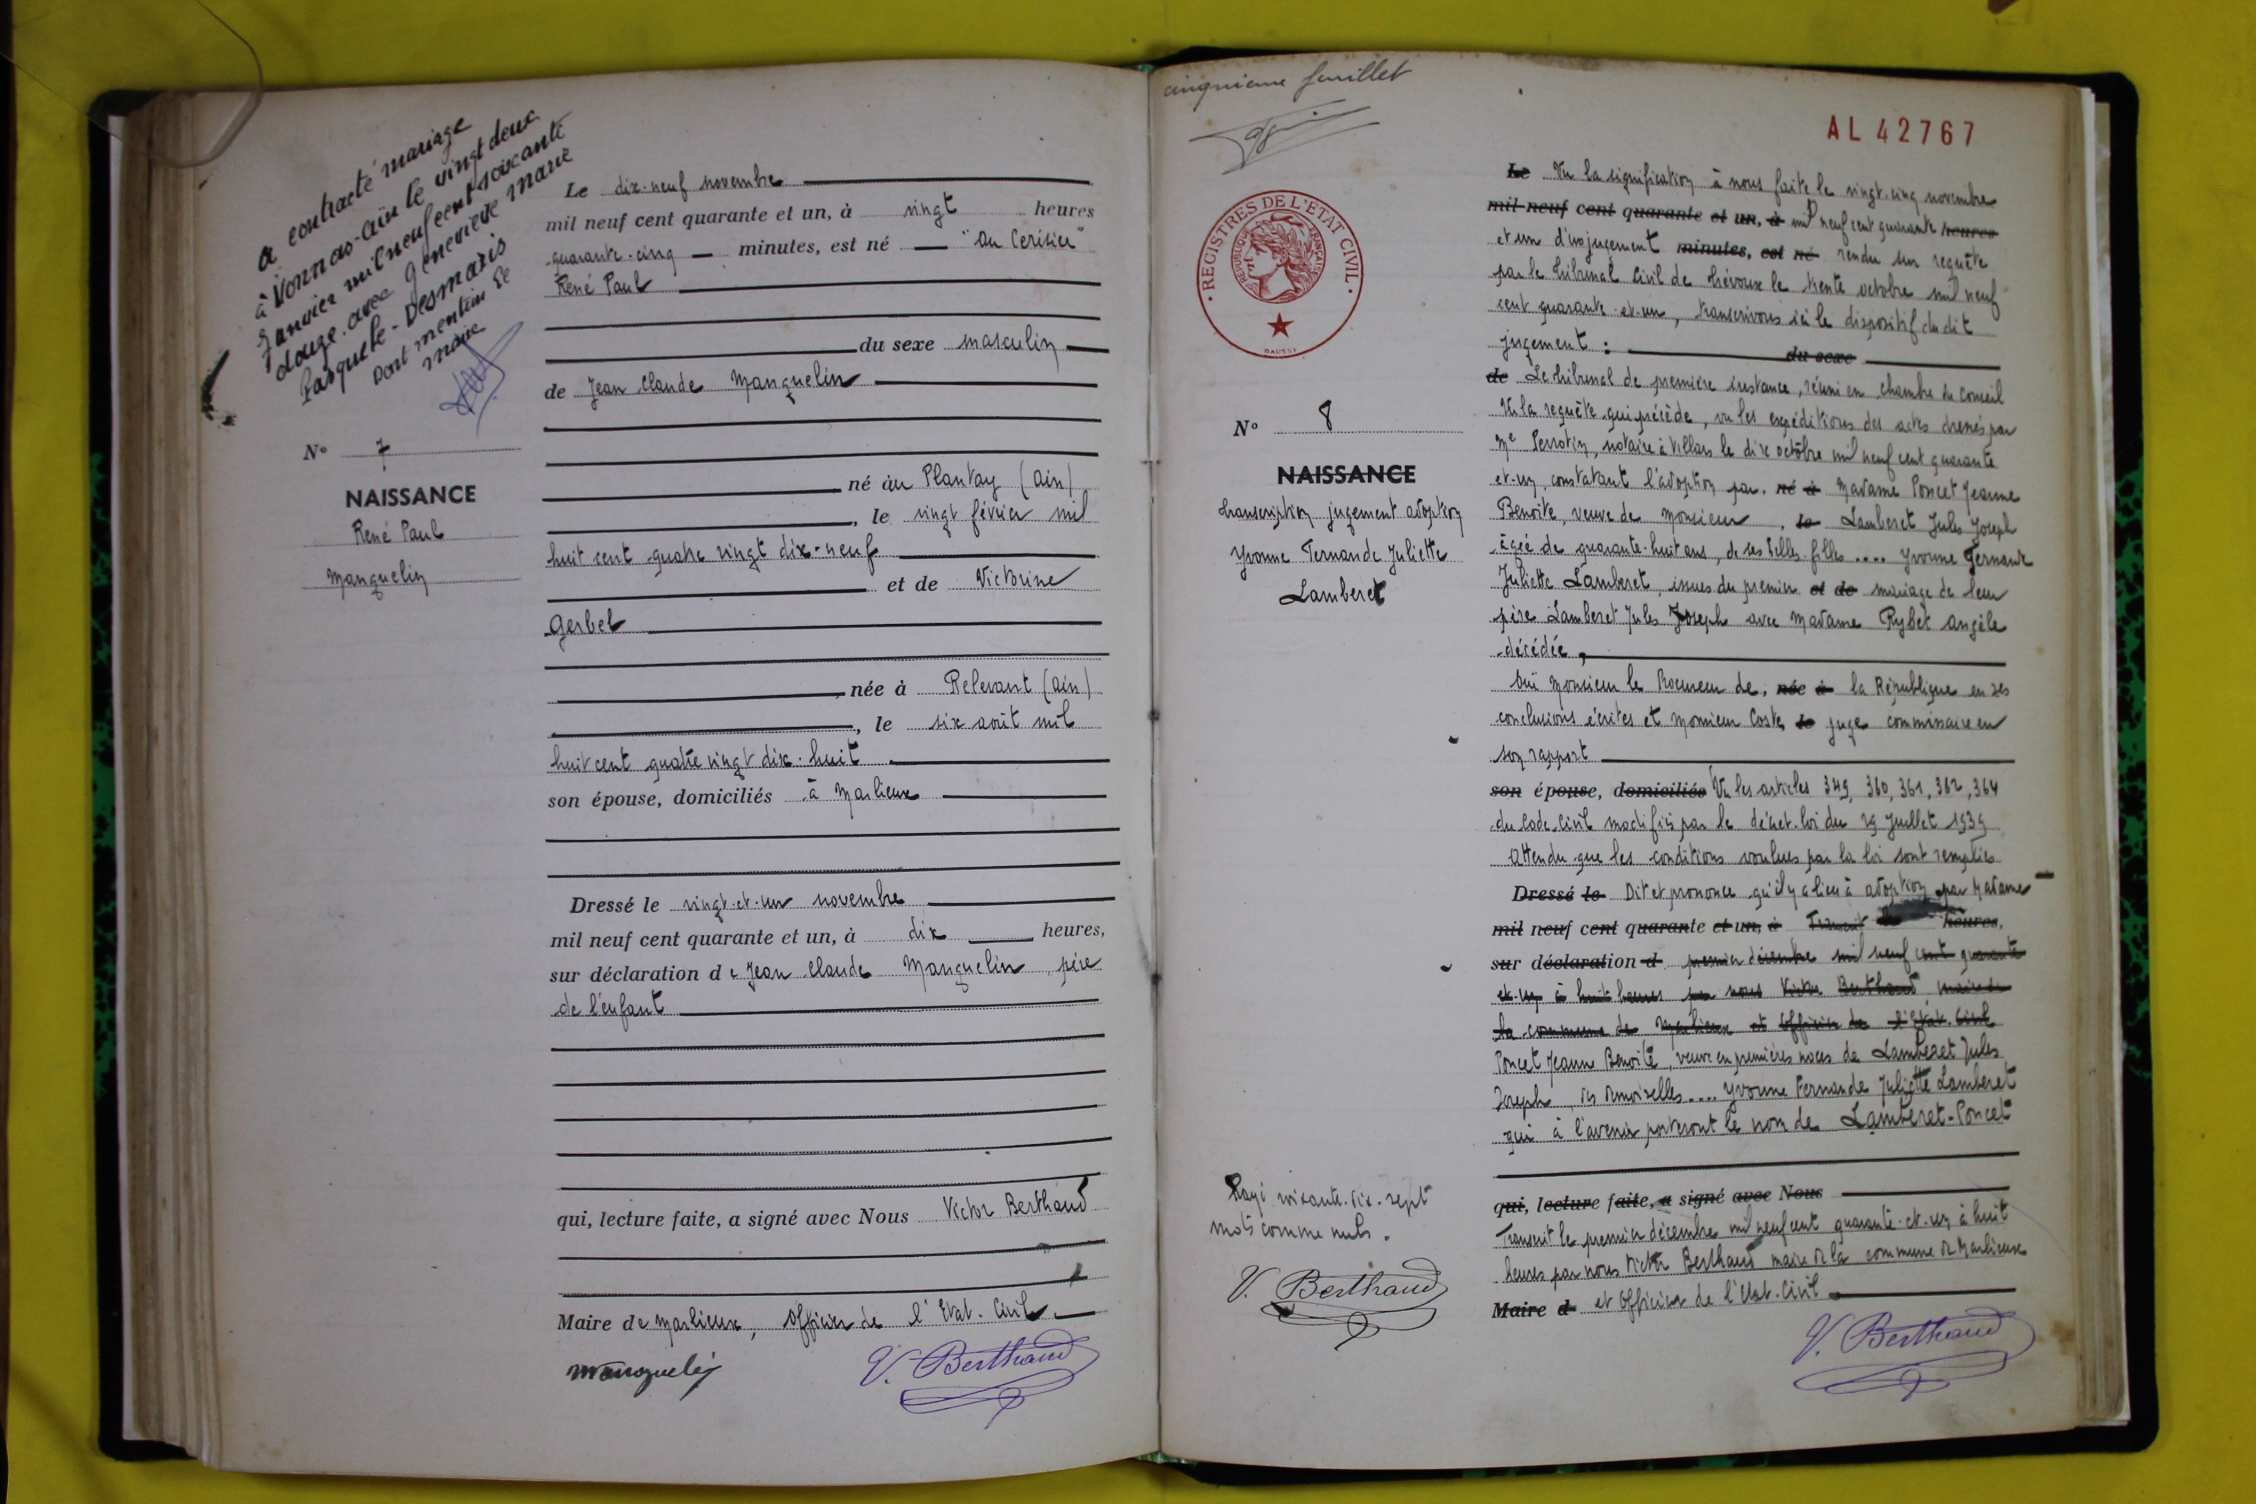 a contracté mariage
à Vonnas-Ain le vingt deux
Janvier mil neuf cent soixante
douze avec Geneviève Marie
Pasquette - Desmaris
Dont mention le
Maire
N° 7
NAISSANCE
René Paul
Manguelin
Le dix-neuf novembre
mil neuf cent quarante et un, à vingt heures
quarante-cinq minutes, est né "Au Cerisier"
René Paul
du sexe masculin
de Jean Claude Manguelin
né au Plantay (Ain)
, le vingt février mil
huit cent quatre vingt dix-neuf
et de Victorine
Gerbet
, née à Relevant (Ain)
, le six août mil
huit cent quatre vingt dix-huit
son épouse, domiciliés à Marlieux
Dressé le vingt-et-un novembre
mil neuf cent quarante et un, à dix heures,
sur déclaration de Jean Claude Manguelin père
de l'enfant
qui, lecture faite, a signé avec Nous Victor Berthaud
Maire de Marlieux, Officier de l'Etat-Civil
Manguelin
V. Berthaud
cinquième feuillet
AL 42767
REGISTRES DE L'ETAT CIVIL
REPUBLIQUE FRANÇAISE
N° 8
NAISSANCE
Transcription jugement adoption
Yvonne Fernande Juliette
Lamberet
Le Vu la signification à nous faite le vingt-cinq novembre
mil neuf cent quarante et un, à mil neuf cent quarante heures
et un d'un jugement minutes, est né rendu sur requête
par le Tribunal Civil de Trévoux le trente octobre mil neuf
cent quarante-et-un, transcrivons ici le dispositif du dit
jugement : du sexe
de Le tribunal de première instance, réuni en chambre du conseil
Vu la requête qui précède, vu les expéditions des actes dressés par
Me Perrotin, notaire à Villars le dix octobre mil neuf cent quarante
et-un, constatant l'adoption par né à Madame Poncet Jeanne
Benoite, veuve de Monsieur , le Lamberet Jules Joseph
âgée de quarante-huit ans, de ses belles-filles .... Yvonne Fernande
Juliette Lamberet, issues du premier et de mariage de leur
père Lamberet Jules Joseph avec Madame Rybet Angèle
décédée,
Ouï Monsieur le Procureur de, née à la République en ses
conclusions écrites et Monsieur Coste, le juge commissaire en
son rapport
son épouse, domiciliés Vu les articles 349, 360, 361, 362, 364
du Code Civil modifiés par le décret-loi du 29 Juillet 1939
Attendu que les conditions voulues par la loi sont remplies
Dressé le Dit et prononce qu'il y a lieu à adoption par Madame
mil neuf cent quarante et un, à Transcrit heures,
sur déclaration d premier décembre mil neuf cent quarante
et-un à huit heures par nous Victor Berthaud maire de
la commune de Marlieux et Officier de l'Etat-Civil
Poncet Jeanne Benoite, veuve en premières noces de Lamberet Jules
Joseph, des demoiselles .... Yvonne Fernande Juliette Lamberet
qui à l'avenir porteront le nom de Lamberet-Poncet
qui, lecture faite, a signé avec Nous
Transcrit le premier décembre mil neuf cent quarante-et-un à huit
heures par nous Victor Berthaud maire de la commune de Marlieux
Maire d et Officier de l'Etat-Civil
V. Berthaud
Rayé soixante-dix-sept
mots comme nuls.
V. Berthaud